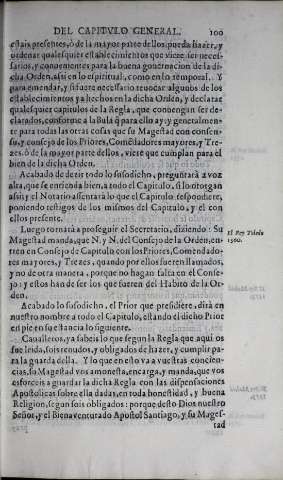 DEL CAPITVLO GENERAL. 100
estais presentes, ò de la mayor parte dellos, pueda hazer, y
ordenar qualesquier establecimientos que viere ser necessa
rios, y conuenientes para la buena gouernacion de la di-
cha Orden, assi en lo espiritual, como en lo temporal. Y
para emendar, y si fuere necessario reuocar algunos de los
establecimientos ya hechos en la dicha Orden, y declarar
qualesquier capitulos de la Regla, que conuengan ser de-
clarados, conforme a la Bula q̃ para ello ay: y generalmen-
te para todas las otras cosas que su Magestad con consen-
su, y consejo de los Priores, Comẽdadores mayores, y Tre-
zes, ò de la mayor parte dellos, viere que cumplan para el
bien de la dicha Orden.
Acabado de dezir todo lo susodicho, preguntarà a voz
alta, que se entienda bien, a todo el Capitulo, si lo otorgan
assi: y el Notario assentarà lo que el Capitulo respondiere,
poniendo testigos de los mismos del Capitulo, y el con
ellos presente.
Luego tornarà a proseguir el Secretario, diziendo: Su
Magestad manda, que N. y N. del Consejo de la Orden, en-
tren en Consejo de Capitulo con los Priores, Comendado-
res mayores, y Trezes, quando por ellos fueren llamados,
y no de otra manera, porque no hagan falta en el Conse-
jo: y estos han de ser los que fueren del Habito de la Or-
den.
El Rey Toledo
1560.
Acabado lo susodicho, el Prior que presidiere, dirà en
nuestro nombre a todo el Capitulo, estando el dicho Prior
en pie en su estancia lo siguiente.
Caualleros, ya sabeis lo que segun la Regla que aqui os
fue leida, sois tenudos, y obligados de hazer, y cumplir pa-
ra la guarda della. Y lo que en esto va a vuestras concien-
cias, su Magestad vos amonesta, encarga, y manda, que vos
esforceis a guardar la dicha Regla con las dispensaciones
Apostolicas sobre ella dadas, en toda honestidad, y buena
Religion, segun sois obligados: porque desto Dios nuestro
Señor, y el Bienauenturado Apostol Santiago, y su Mages-
tad